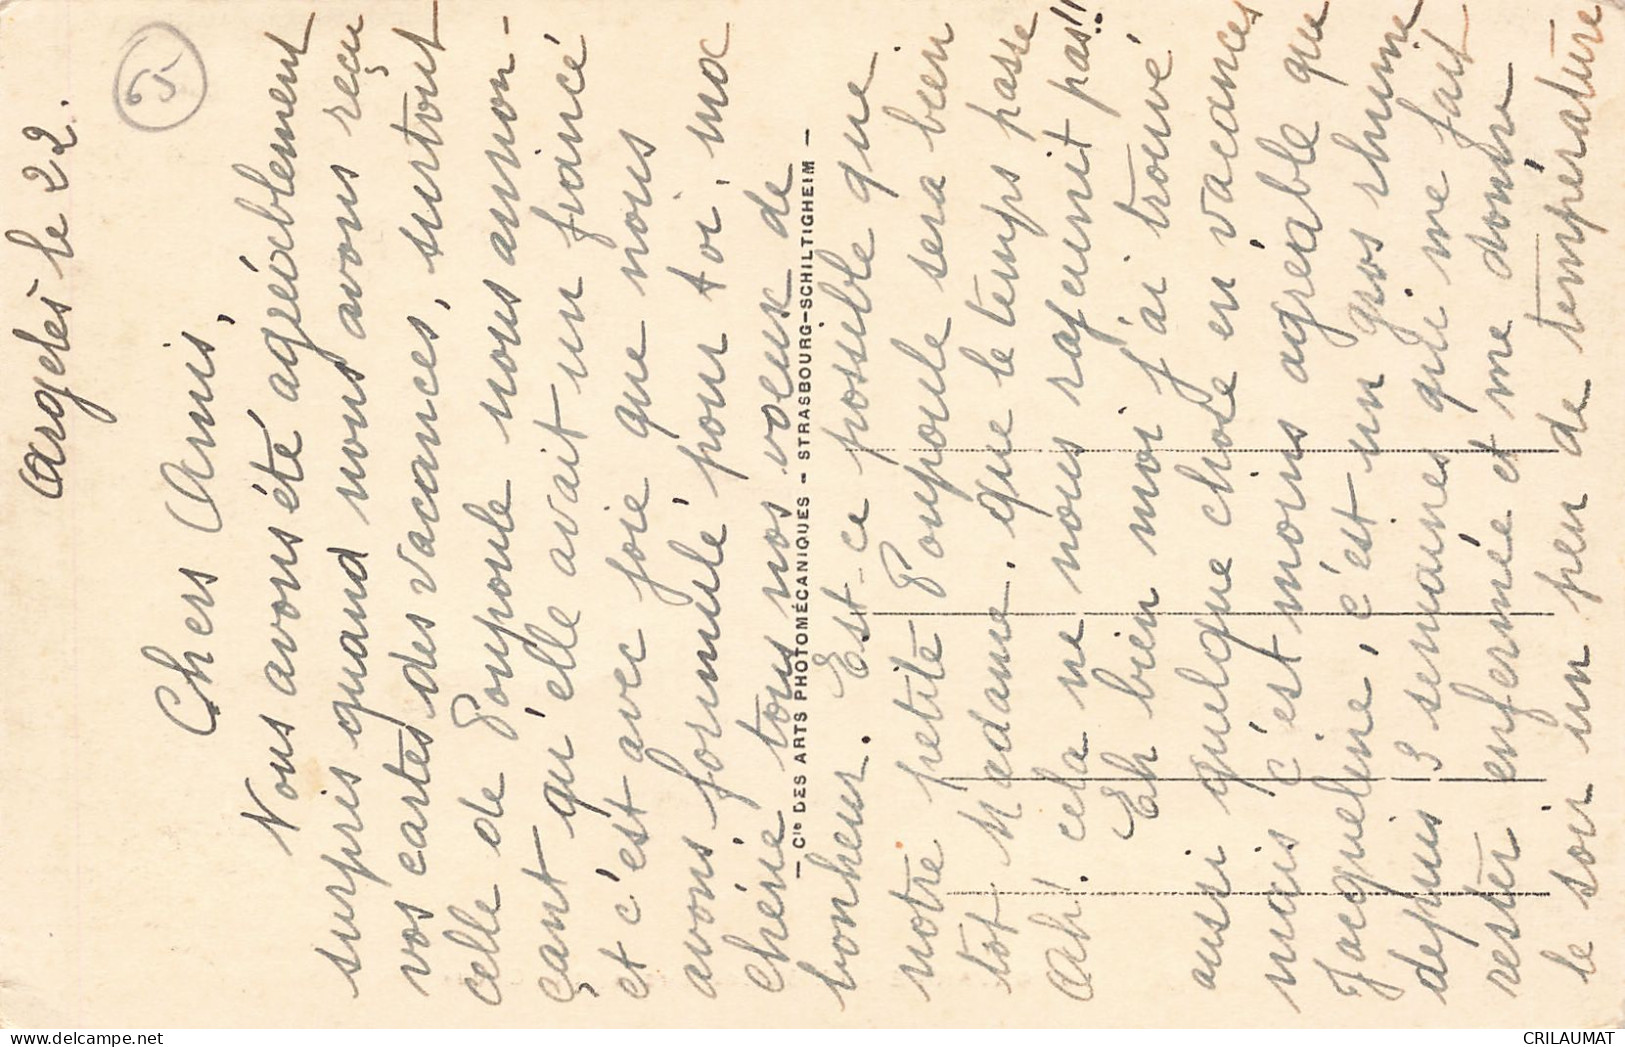 Argelès le 22.
Chers Amis,
Nous avons été agréablement
surpris quand nous avons reçu
vos cartes des vacances, surtout
celle de Poupoule nous annon-
çant qu'elle avait un fiancé
et c'est avec joie que nous
avons formulé pour toi, ma
chérie tous nos voeux de
bonheur. Est-ce possible que
notre petite Poupoule sera bien
tot Madame. que le temps passe
Ah! cela ne nous rajeunit pas!!
Eh bien moi j'ai trouvé
aussi quelque chose en vacances
mais c'est moins agréable que
Jacqueline, c'est un gros rhume
depuis 3 semaines qui me fait
rester enfermée et me donne
le soir un peu de température
— Cie DES ARTS PHOTOMÉCANIQUES — STRASBOURG-SCHILTIGHEIM —
CRILAUMAT